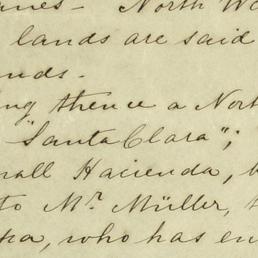 North
lands are said
thence a Nort
"Santa Clara";
Hacienda,
to Mr. Müller,
who has en